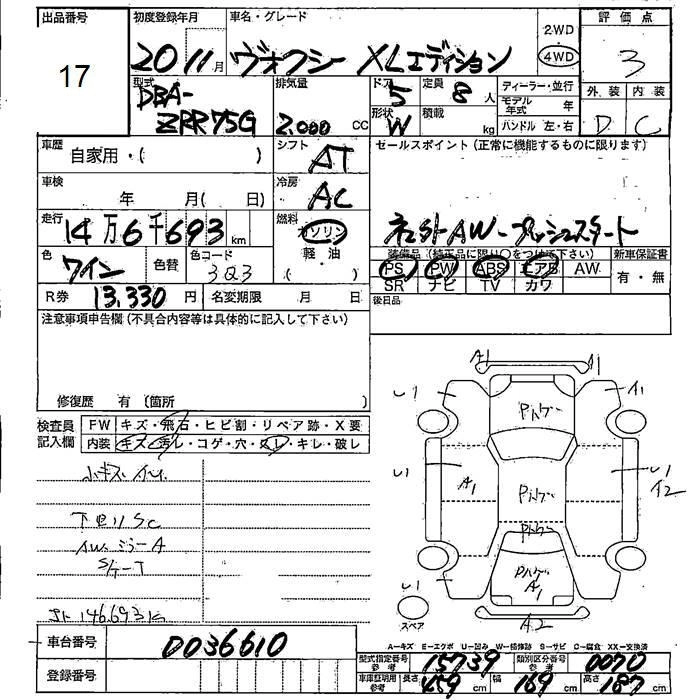 出品番号 17
初度登録年月 2011月
車名・グレード ヴォクシー XLエディション
2WD
4WD
評価点 3
外装 内装
D C
型式 DBA-
ZRR75G
排気量 2.000 CC
ドア 5 定員 8 人
形状 W 積載 kg
ディーラー・並行
モデル年式 年
ハンドル 左・右
車歴 自家用・( )
シフト AT
セールスポイント (正常に機能するものに限ります)
車検 年 月( 日)
冷房 AC
走行 14万6千693km
燃料 ガソリン
軽・油
社外AW-プッシュスタート
色 ワイン 色替 色コード 3Q3
装備品 (純正品に限り○をつけて下さい) 新車保証書
PS PW ABS エアB AW 有・無
SR ナビ TV カワ
R券 13.330円 名変期限 月 日
後日品
注意事項申告欄 (不具合内容等は具体的に記入して下さい)
修復歴 有 〔箇所 〕
検査員
記入欄
FW キズ・飛石・ヒビ割・リペア跡・X要
内装 キズ・汚レ・コゲ・穴・スレ・キレ・破レ
下回りSC
AW ミラーA
S/ケーT
146.693K
A1
A1
A2
A1
A1
A2
スペア
A-キズ E-エクボ U-凹み W-補修跡 S-サビ C-腐食 XX-交換済
車台番号 0036610
登録番号
型式指定番号 参考 15739 類別区分番号 参考 0070
車庫証明用 参考 長さ 459 cm 幅 169 cm 高さ 187 cm